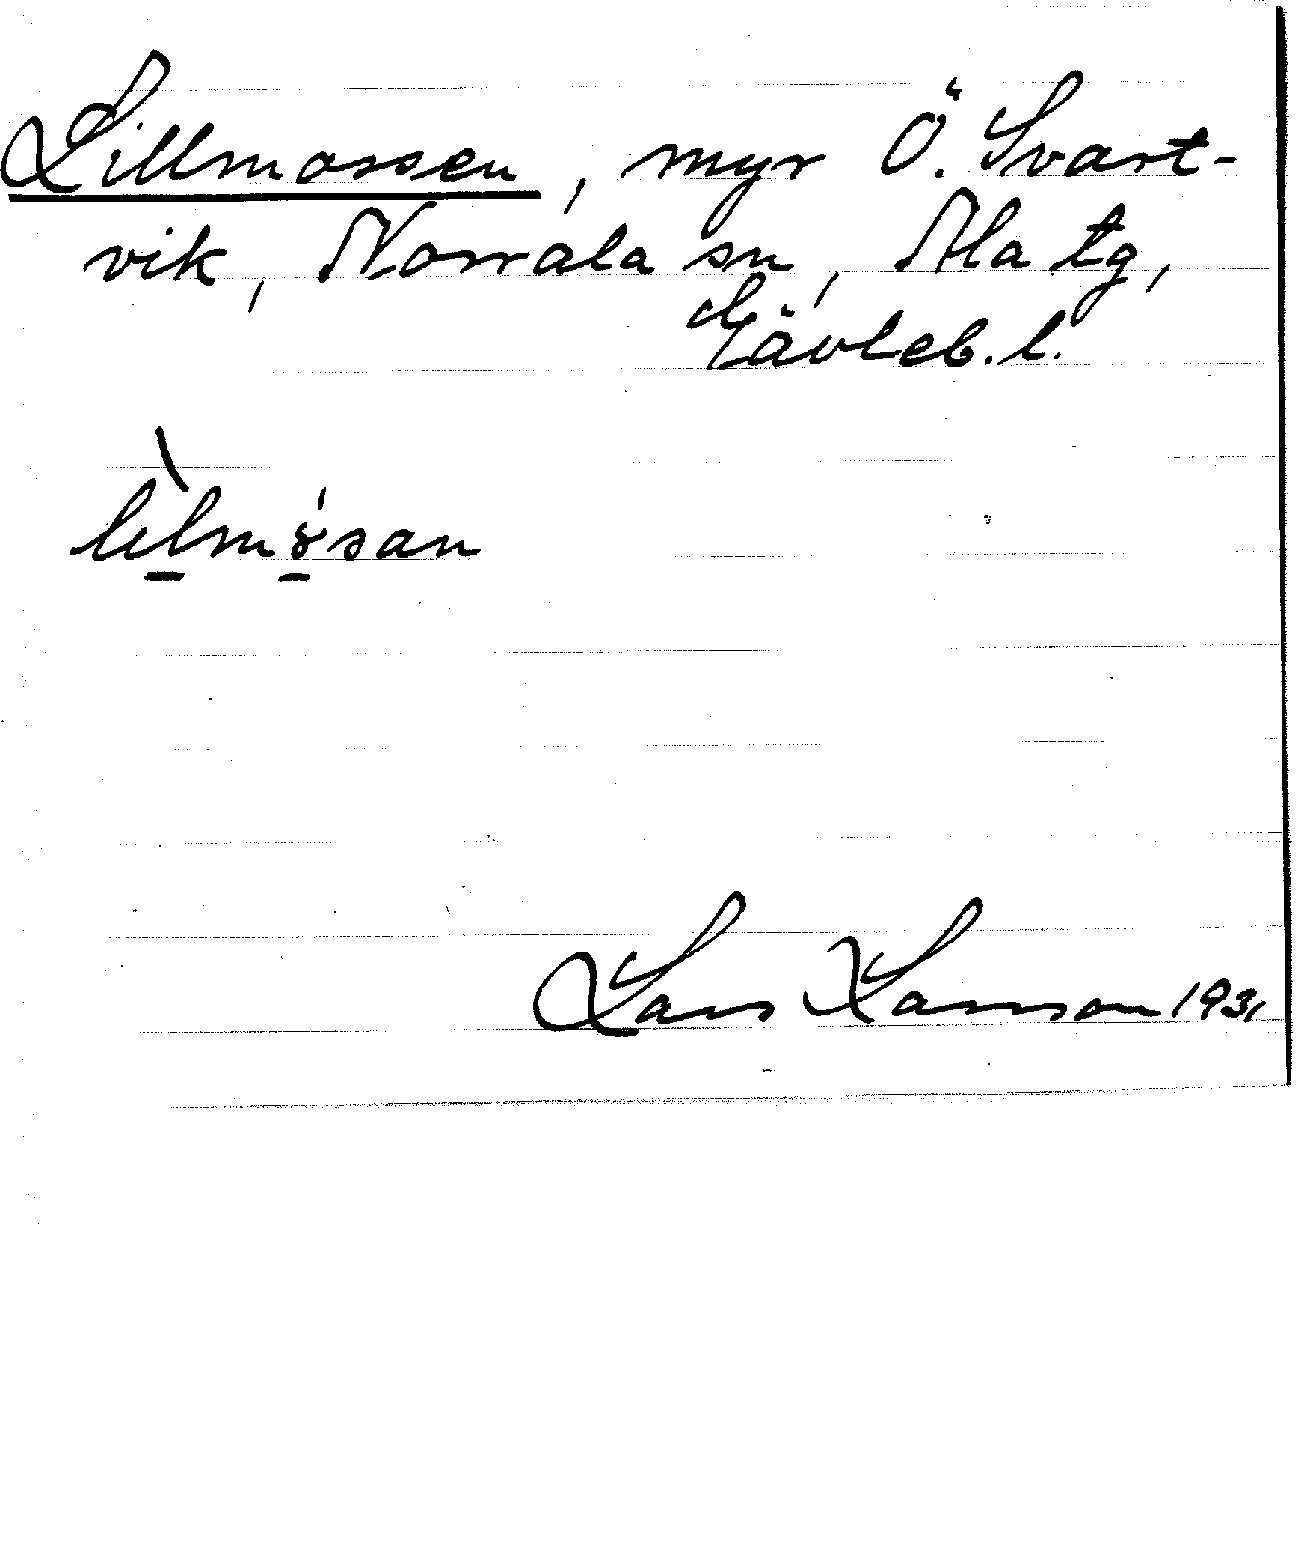 Lillmossen, myr Ö. Svart-
vik, Norrala sn, Ala tg,
Gävleb. l.
lelmósan
Lars Larsson 1931